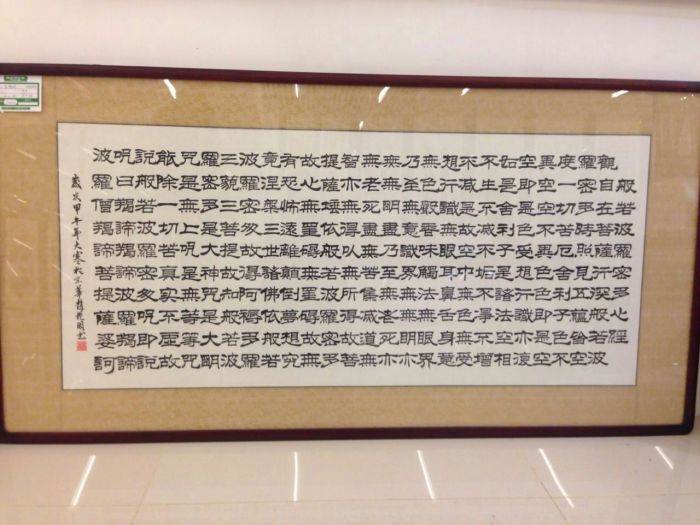 般若波羅蜜多心經
觀自在菩薩行深般若波
羅蜜多時照見五蘊皆空
度一切苦厄舍利子色不
異空空不異色色即是空
空即是色受想行識亦復
如是舍利子是諸法空相
不生不滅不垢不淨不增
不減是故空中無色無受
想行識無眼耳鼻舌身意
無色聲香味觸法無眼界
乃至無意識界無無明亦
無無明盡乃至無老死亦
無老死盡無苦集滅道無
智亦無得以無所得故菩
提薩埵依般若波羅蜜多
故心無罣礙無罣礙故無
有恐怖遠離顛倒夢想究
竟涅槃三世諸佛依般若
波羅蜜多故得阿耨多羅
三藐三菩提故知般若波
羅蜜多是大神咒是大明
咒是無上咒是無等等咒
能除一切苦真實不虛故
說般若波羅蜜多咒即說
呪曰羯諦羯諦波羅羯諦
波羅僧羯諦菩提薩婆訶
歲次甲午年大寒於京華